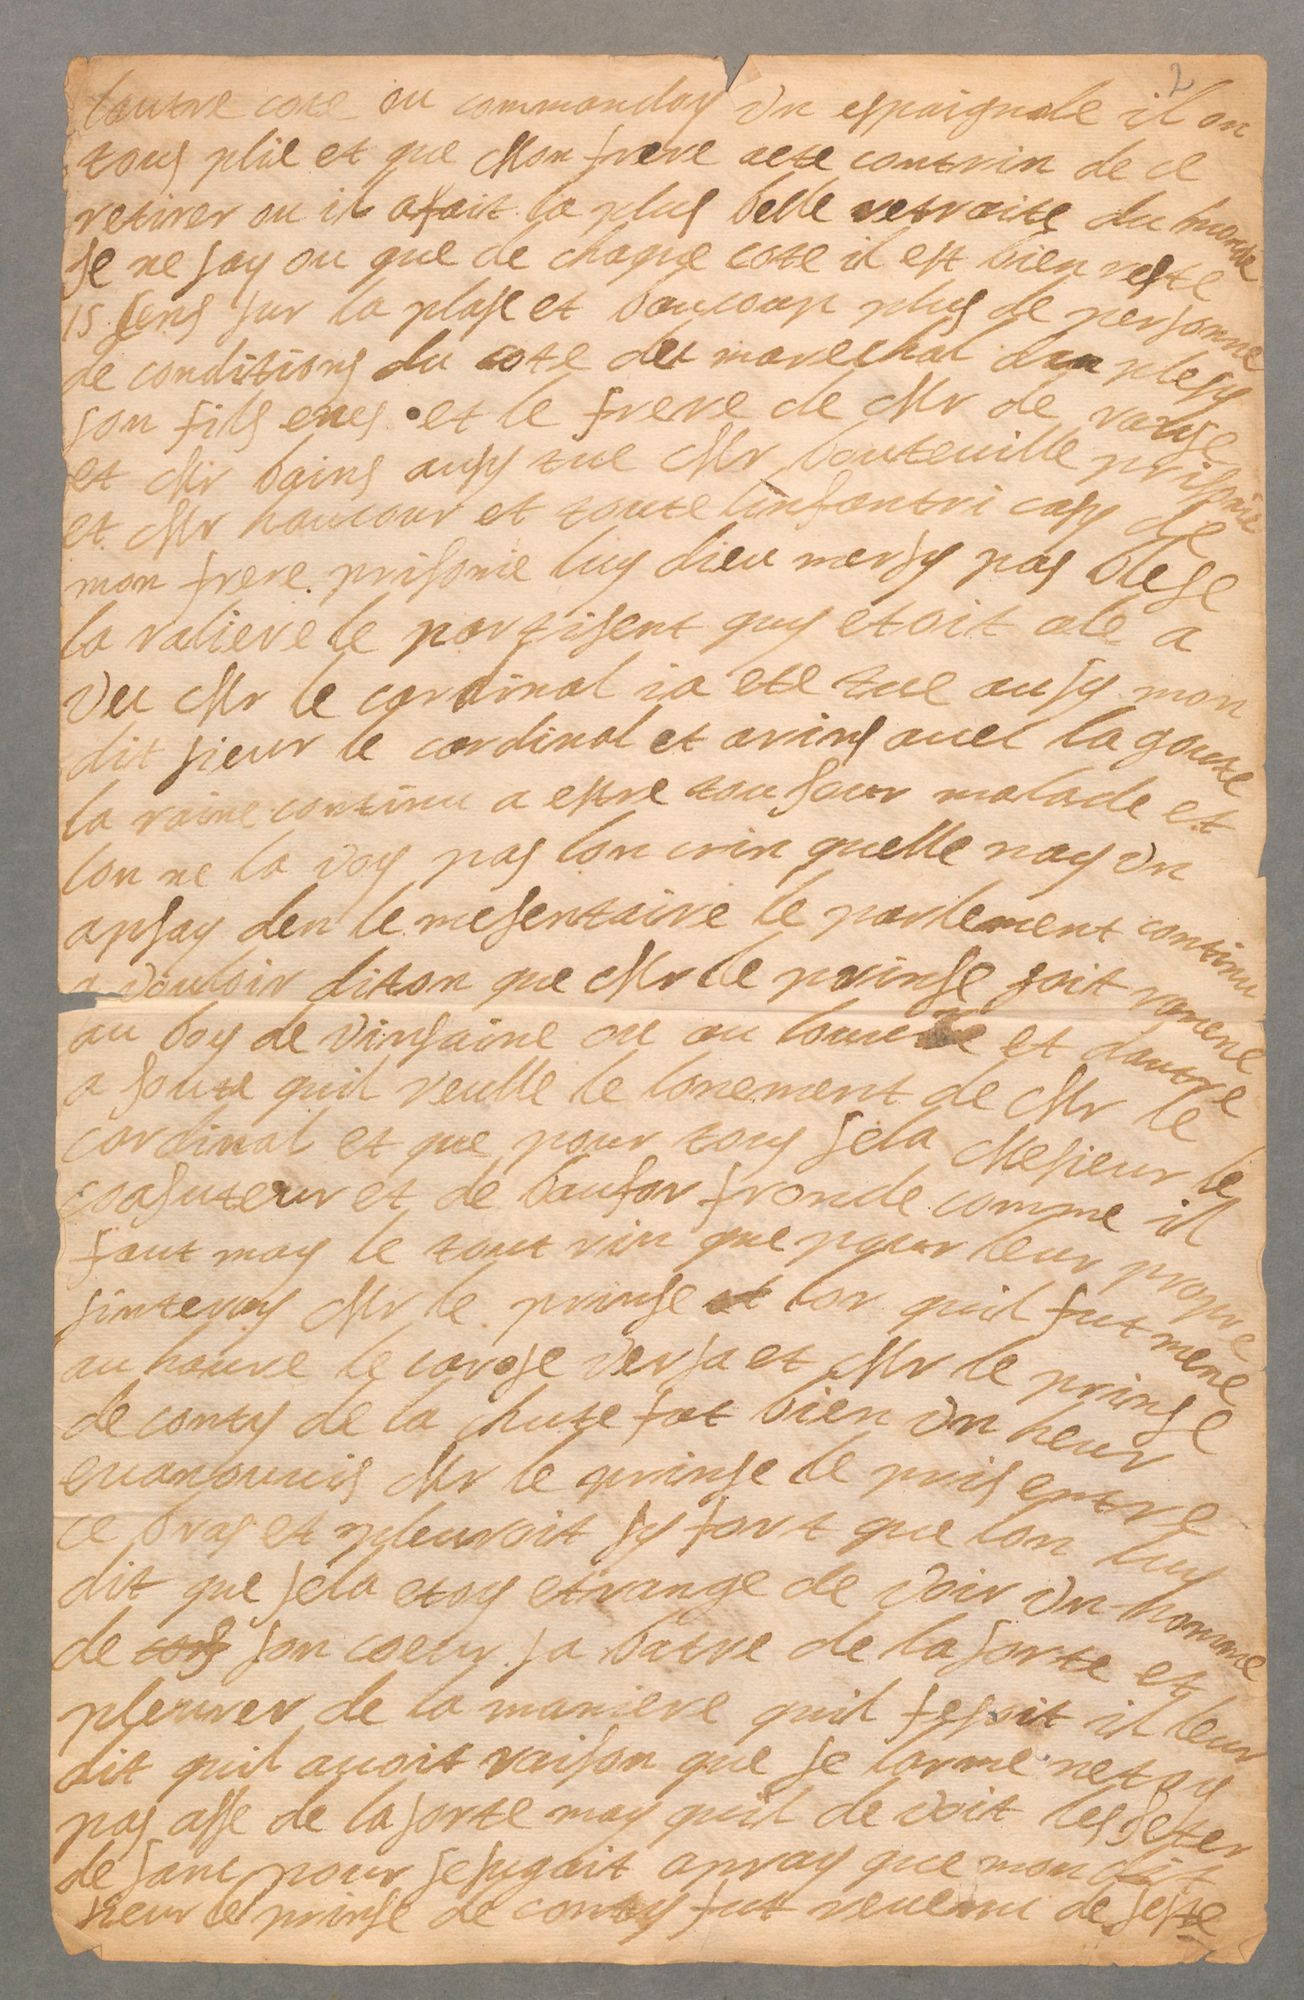 2
lautre cote ou commanday un espaignole il on
tous plié et que Mon frere aete contrin de ce
retirer ou il a fait la plus belle retraite du monde
Je ne say ou que de chaque cote il est bien reste
15 sens sur la plase et baucoup plus de personne
de conditions du cote det marechal du plesy
son fils enes et le frere de Mr de
et Mr bains ausy tue Mr bouteuille prisonie
et Mr haucour et toute linfantri casy de
mon frere prisonie luy dieu mersy pas blese
la raliere le partisent quy etoit ale a
veu Mr le cardinal ia ete tue ausy mon
dit sieur le cardinal et arins auec la goute
la raine continu a estre tousour malade et
lon ne la voy pas lon crin quelle nay un
apsay den le mesentaire le parlement continu
a vouloir diton que Mr le prinse soit ramene
au boy de vinsaine ou au louure et dautre
a soute quil veulle le lonement de Mr le
cardinal et que pour tous sela Mesieur le
coasuteur et de baufor fronde comme il
faut may le tout rin que pour leur propre
sinteray Mr le prinse lor quil fut mene
au haure le carose versa et Mr le prinse
de conty de la chute fut bien un heur
euanouuis Mr le prinse le pris entre
ce bras et pleuroit sy fort que lon luy
dit que sela etoy etrange de voir un homme
de son coeur sa batre de la sorte et
pleurer de la maniere quil fesoit il leur
dit quil auoit raison que se larme netoy
pas asse de la sorte may quil de voit les seter
de sanc pour se sugait apray que mon dit
sieur le prinse de conty fut reuenu de seste